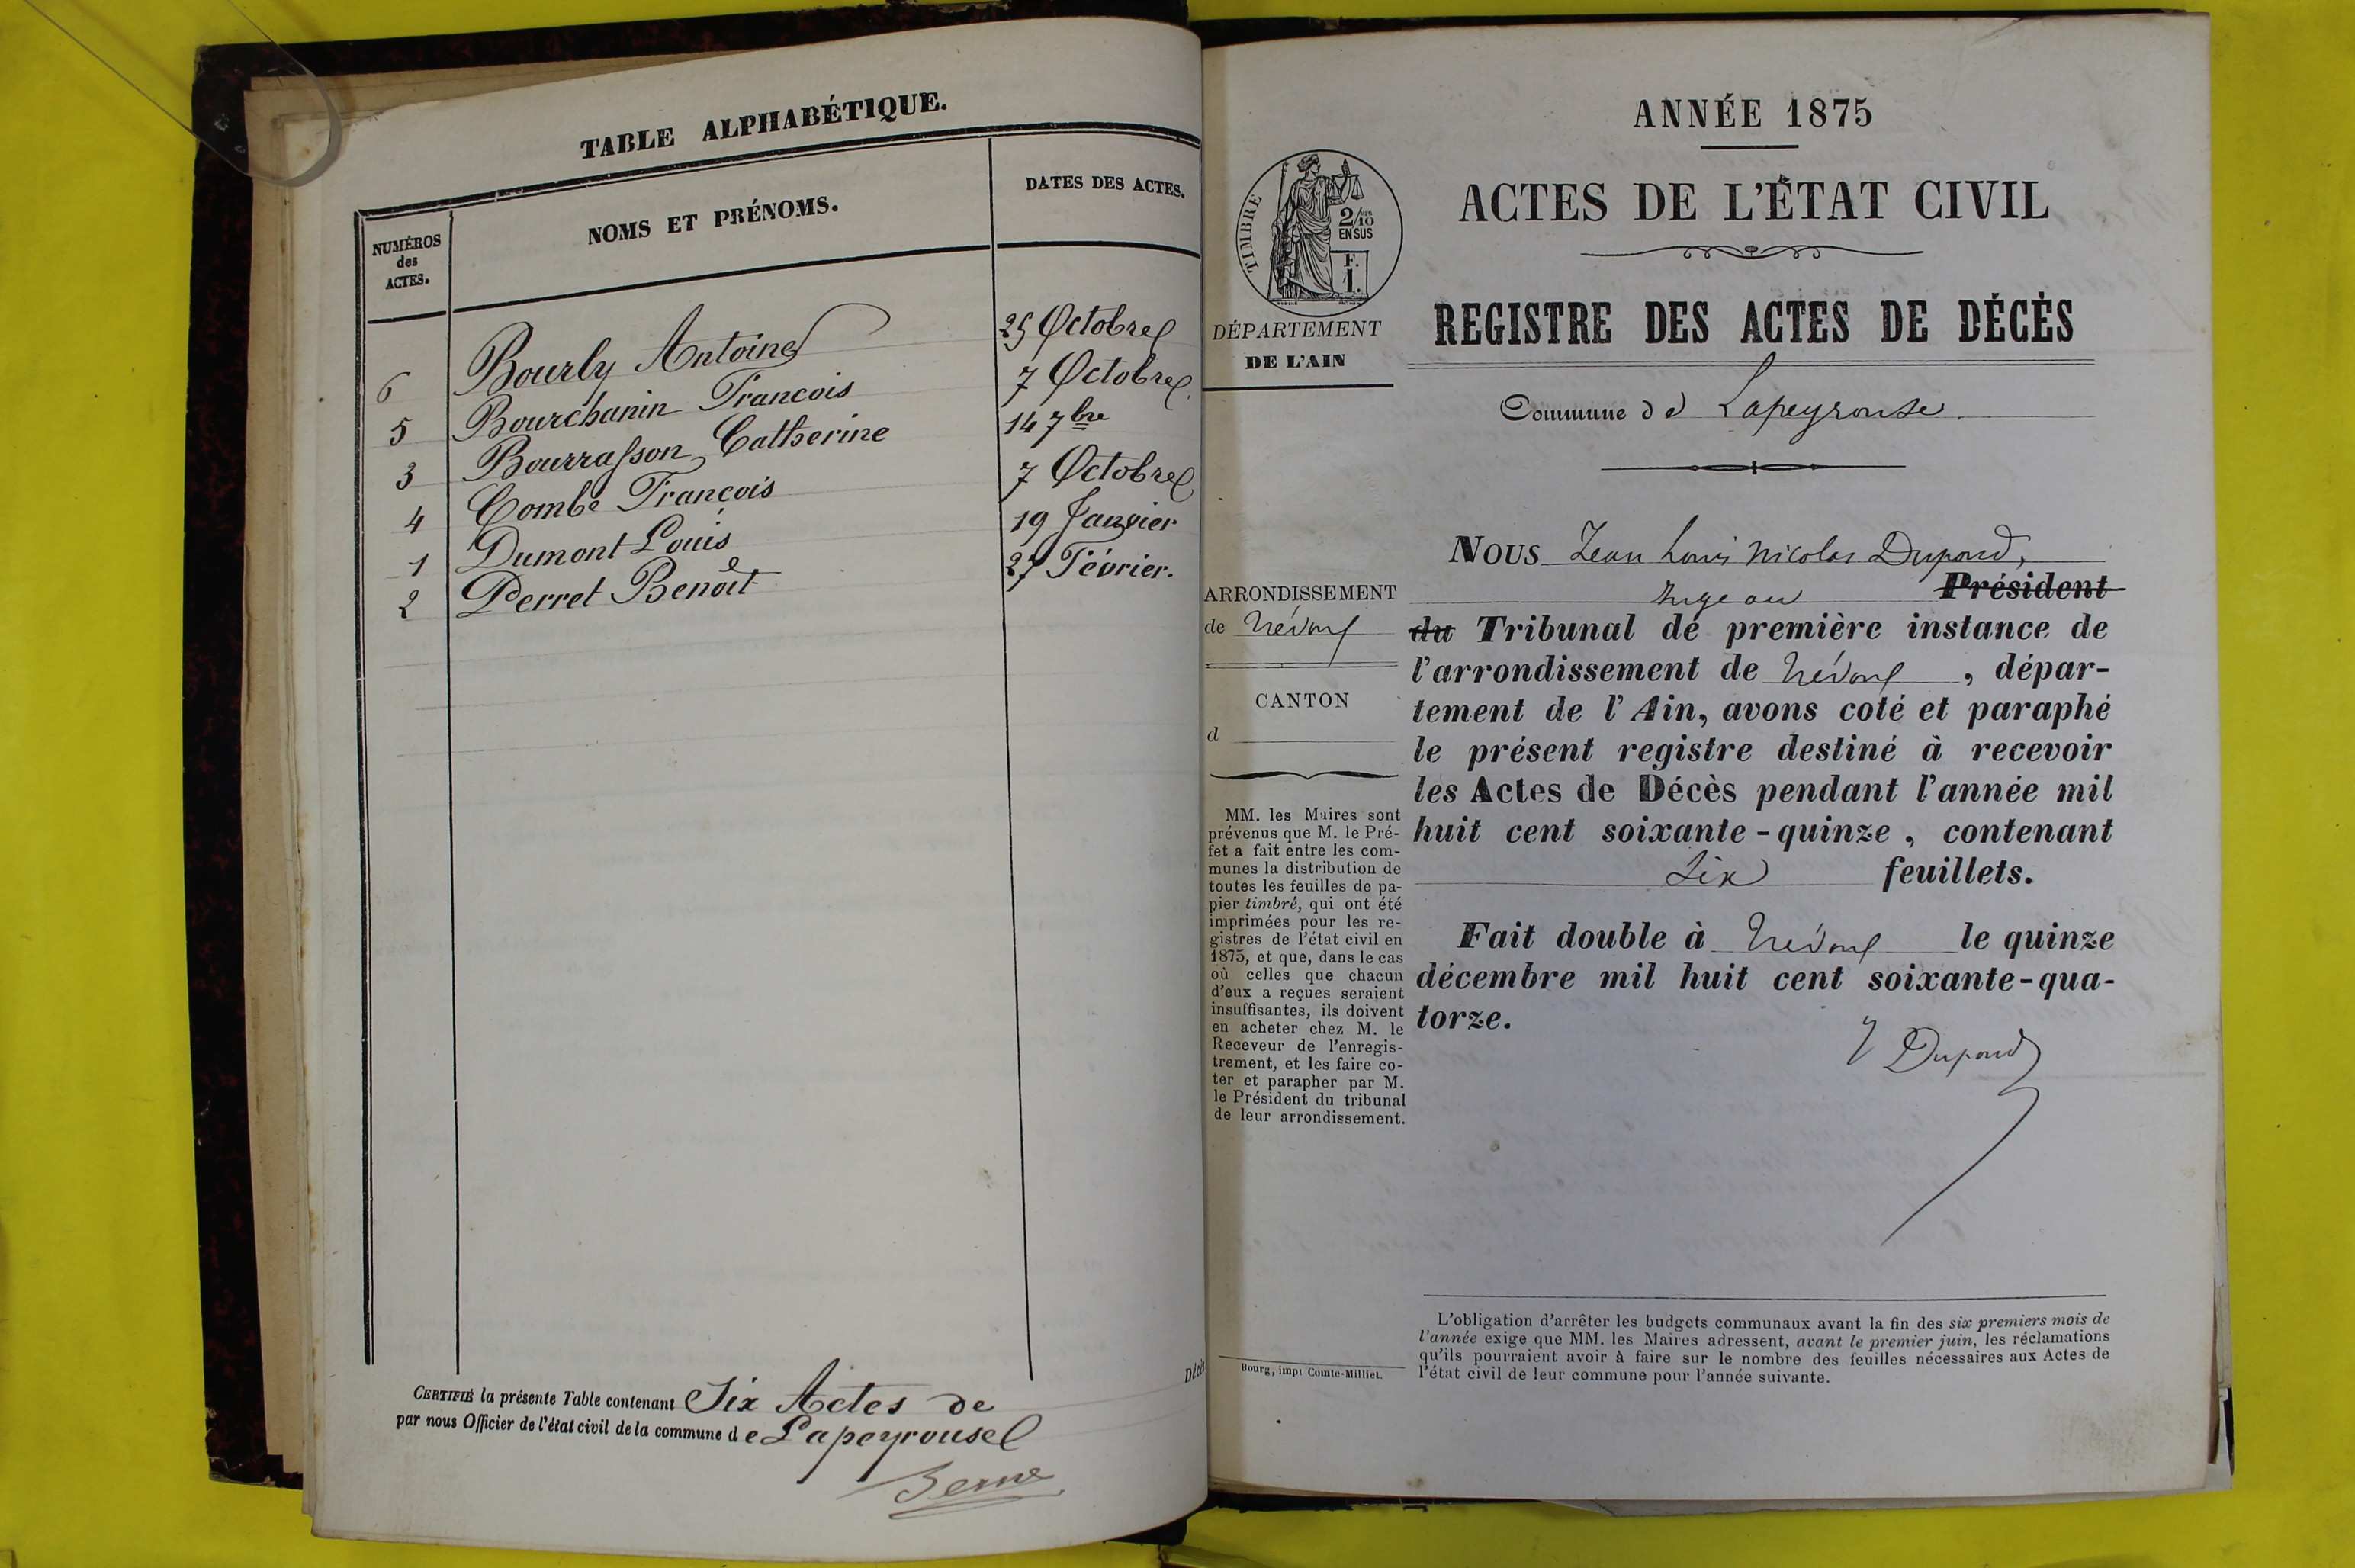 TABLE ALPHABÉTIQUE.
NUMÉROS des ACTES.
NOMS ET PRÉNOMS.
DATES DES ACTES.
6 Bourly Antoine 25 Octobre
5 Bourchanin Francois 7 Octobre
3 Bourrasson Catherine 14 7bre
4 Combe François 7 Octobre
1 Dumont Louis 19 Janvier
2 Perret Benoît 27 Février.
CERTIFIÉ la présente Table contenant Six Actes de
par nous Officier de l'état civil de la commune de Lapeyrouse
Décès
TIMBRE
2/10 EN SUS
F.
1.
DÉPARTEMENT
DE L'AIN
ARRONDISSEMENT
de Trévoux
CANTON
d
MM. les Maires sont
prévenus que M. le Pré-
fet a fait entre les com-
munes la distribution de
toutes les feuilles de pa-
pier timbré, qui ont été
imprimées pour les re-
gistres de l'état civil en
1875, et que, dans le cas
où celles que chacun
d'eux a reçues seraient
insuffisantes, ils doivent
en acheter chez M. le
Receveur de l'enregis-
trement, et les faire co-
ter et parapher par M.
le Président du tribunal
de leur arrondissement.
Bourg, imp. Comte-Milliet.
ANNÉE 1875
ACTES DE L'ÉTAT CIVIL
REGISTRE DES ACTES DE DÉCÈS
Commune de Lapeyrouse.
NOUS Jean Louis Nicolas Dupond,
Juge au Président
du Tribunal de première instance de
l'arrondissement de Trévoux, dépar-
tement de l'Ain, avons coté et paraphé
le présent registre destiné à recevoir
les Actes de Décès pendant l'année mil
huit cent soixante-quinze, contenant
Six feuillets.
Fait double à Trévoux le quinze
décembre mil huit cent soixante-qua-
torze.
Dupond
L'obligation d'arrêter les budgets communaux avant la fin des six premiers mois de
l'année exige que MM. les Maires adressent, avant le premier juin, les réclamations
qu'ils pourraient avoir à faire sur le nombre des feuilles nécessaires aux Actes de
l'état civil de leur commune pour l'année suivante.